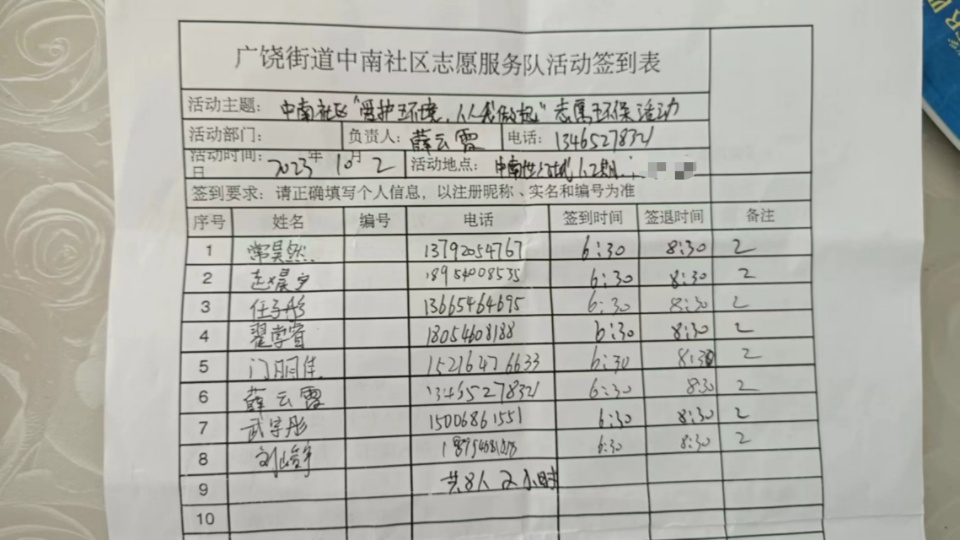 广饶街道中南社区志愿服务队活动签到表
活动主题： 中南社区"爱护环境，人人我做起"志愿环保活动
活动部门： 负责人：薛云霞 电话：13465278321
活动时间： 2023年10月2日 活动地点：中南
签到要求：请正确填写个人信息，以注册昵称、实名和编号为准
序号 姓名 编号 电话 签到时间 签退时间 备注
1 常昊然 13792054767 6:30 8:30 2
2 赵晨夕 18954008535 6:30 8:30 2
3 任子彤 13665464695 6:30 8:30 2
4 翟学睿 18054608188 6:30 8:30 2
5 门玥佳 15216476633 6:30 8:30 2
6 薛云霞 13465278321 6:30 8:30 2
7 武宇彤 15006861551 6:30 8:30 2
8 6:30 8:30 2
9 共8人 2小时
10